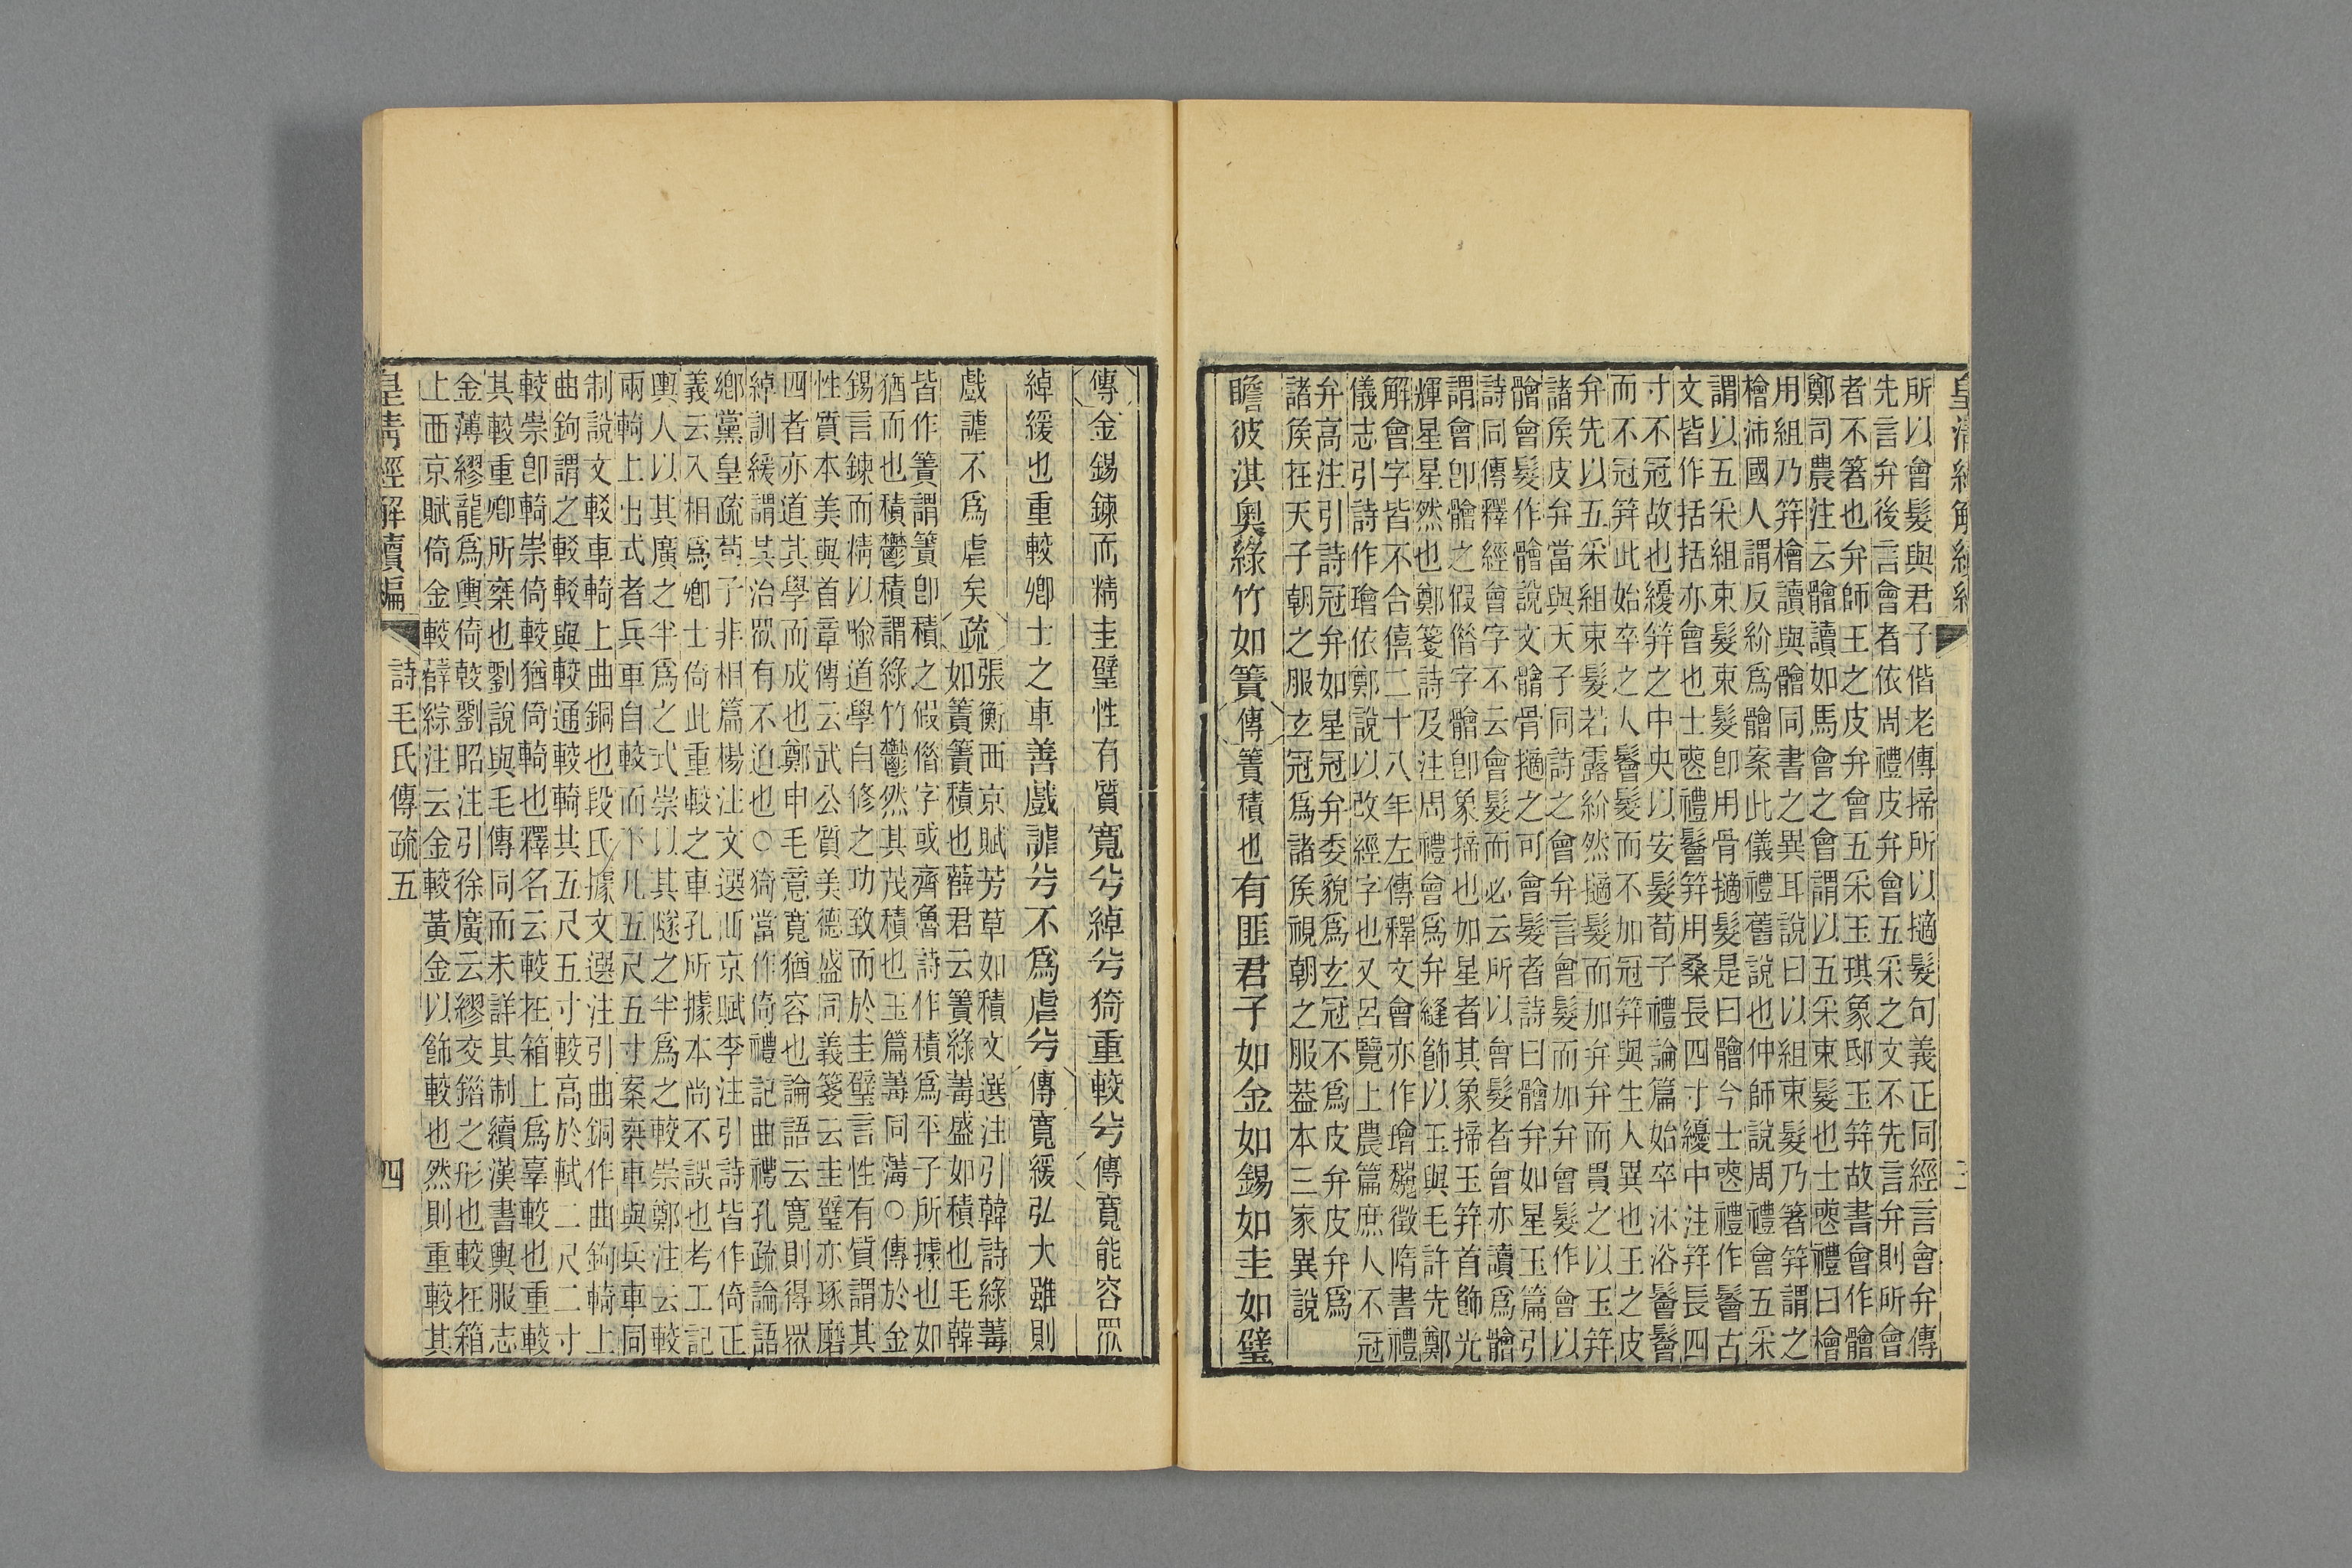 皇清經解續編
三
所以會髮與君子偕老傳揥所以擿髮句義正同經言會弁傳
先言弁後言會者依周禮皮弁會五采之文不先言弁則所會
者不箸也弁師王之皮弁會五采玉琪象邸玉笄故書會作䯤
鄭司農注云䯤讀如馬會之會謂以五采束髮也士喪禮曰檜
用組乃笄檜讀與䯤同書之異耳說曰以組束髮乃箸笄謂之
檜沛國人謂反紒爲䯤案此儀禮舊說也仲師說周禮會五采
謂以五采組束髮束髮卽用骨擿髮是曰䯤今士喪禮作鬠古
文皆作括括亦會也士喪禮鬠笄用桑長四寸纋中注笄長四
寸不冠故也纋笄之中央以安髮荀子禮論篇始卒沐浴鬠
而不冠笄此始卒之人鬠髮而不加冠笄與生人異也王之皮
弁先以五采組束髮若露紒然擿髮而加弁弁而貫之以玉笄
諸矦皮弁當與天子同詩之會弁言會髮而加弁會髮作會以
䯤會髮作䯤說文䯤骨擿之可會髮者詩曰䯤弁如星玉篇引
詩同傳釋經會字不云會髮而必云所以會髮者會亦讀爲䯤
謂會卽䯤之假偕字䯤卽象揥也如星者其象揥玉笄首飾光
輝星星然也鄭箋詩及注周禮會爲弁縫飾以玉與毛許先鄭
解會字皆不合僖二十八年左傳釋文會亦作璯巍徵隋書禮
儀志引詩作璯依鄭說以改經字也又呂覽上農篇庶人不冠
弁高注引詩冠弁如星冠弁委貌爲玄冠不爲皮弁皮弁爲
諸矦在天子朝之服玄冠爲諸矦視朝之服葢本三家異說
瞻彼淇奧綠竹如簀傳簀積也有匪君子如金如錫如圭如璧
傳金錫鍊而精圭璧性有質寬兮綽兮猗重較兮傳寬能容眾
綽緩也重較卿士之車善戲謔兮不爲虐兮傳寬緩弘大雖則
戲謔不爲虐矣疏張衡西京賦芳草如積文選注引韓詩綠䔰
如簀簀積也薛君云簀綠䔰盛如積也毛韓
皆作簀謂簀卽積之假偕字或齊魯詩作積爲平子所據也如
猶而也積鬱積謂綠竹鬱然其茂積也玉篇䔰同薄○傳於金
錫言鍊而精以喻道學自修之功致而於圭璧言性有質謂其
性質本美與首章傳云武公質美德盛同義箋云圭璧亦琢磨
四者亦道其學而成也鄭申毛意寬猶容也論語云寬則得眾
綽訓緩謂其治歠有不迫也○猗當作倚禮記曲禮孔疏論語
鄉黨皇疏荀子非相篇楊注文選西京賦李注引詩皆作倚正
義云入相爲卿士倚此重較之車孔所據本尚不誤也考工記
輿人以其廣之半爲之式崇以其隧之半爲之較崇鄭注云較
兩輢上出式者兵車自較而下凡五尺五寸案棄車與兵車同
制說文䡈車輢上曲銅也段氏據文選注引曲銅作曲鉤輢上
曲鉤謂之䡈䡈與較通較輢其五尺五寸較高於軾二尺二寸
較崇卽輢崇倚較猶倚輢也釋名云較在箱上爲辜較也重較
其較重卿所椉也劉說與毛傳同而未詳其制續漢書輿服志
金薄繆龍爲輿倚較劉昭注引徐廣云繆交錯之形也較在箱
上西京賦倚金較薛綜注云金較黃金以飾較也然則重較其
皇清經解續編
詩毛氏傳疏五
四